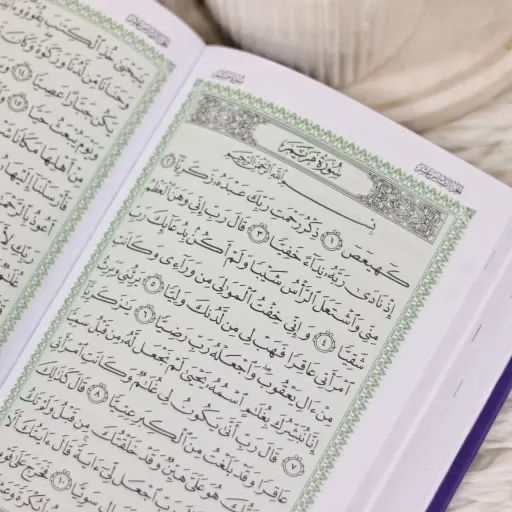 سُورَةُ مَرْيَمَ
بِسْمِ اللَّهِ الرَّحْمَٰنِ الرَّحِيمِ
كٓهيعٓصٓ ١ ذِكْرُ رَحْمَتِ رَبِّكَ عَبْدَهُۥ زَكَرِيَّآ ٢
إِذْ نَادَىٰ رَبَّهُۥ نِدَآءً خَفِيًّا ٣ قَالَ رَبِّ إِنِّي وَهَنَ ٱلْعَظْمُ
مِنِّي وَٱشْتَعَلَ ٱلرَّأْسُ شَيْبًا وَلَمْ أَكُنۢ بِدُعَآئِكَ رَبِّ
شَقِيًّا ٤ وَإِنِّي خِفْتُ ٱلْمَوَٰلِيَ مِن وَرَآءِي وَكَانَتِ
ٱمْرَأَتِي عَاقِرًا فَهَبْ لِي مِن لَّدُنكَ وَلِيًّا ٥ يَرِثُنِي وَيَرِثُ
مِنْ ءَالِ يَعْقُوبَ وَٱجْعَلْهُ رَبِّ رَضِيًّا ٦ يَٰزَكَرِيَّآ
إِنَّا نُبَشِّرُكَ بِغُلَٰمٍ ٱسْمُهُۥ يَحْيَىٰ لَمْ نَجْعَل لَّهُۥ مِن قَبْلُ سَمِيًّا
٧ قَالَ رَبِّ أَنَّىٰ يَكُونُ لِي غُلَٰمٌ وَكَانَتِ ٱمْرَأَتِي
عَاقِرًا وَقَدْ بَلَغْتُ مِنَ ٱلْكِبَرِ عِتِيًّا ٨ قَالَ كَذَٰلِكَ
رَبُّكَ هُوَ عَلَيَّ هَيِّنٌ وَقَدْ خَلَقْتُكَ مِن قَبْلُ وَلَمْ تَكُ
قَالَ رَبِّ ٱجْعَل لِّي ءَايَةً قَالَ ءَايَتُكَ أَلَّا
سَوِيًّا ١٠ فَخَرَجَ عَلَىٰ
يَٰيَحْيَىٰ خُذِ ٱلْكِتَٰبَ بِقُوَّةٍ
وَحَنَانًا مِّن لَّدُنَّا وَزَكَوٰةً وَكَانَ
يَكُن جَبَّارًا عَصِيًّا ١٤
وَيَوْمَ يُبْعَثُ حَيًّا ١٥
مِنْ أَهْلِهَا مَكَانًا
فَأَرْسَلْنَآ إِلَيْهَا